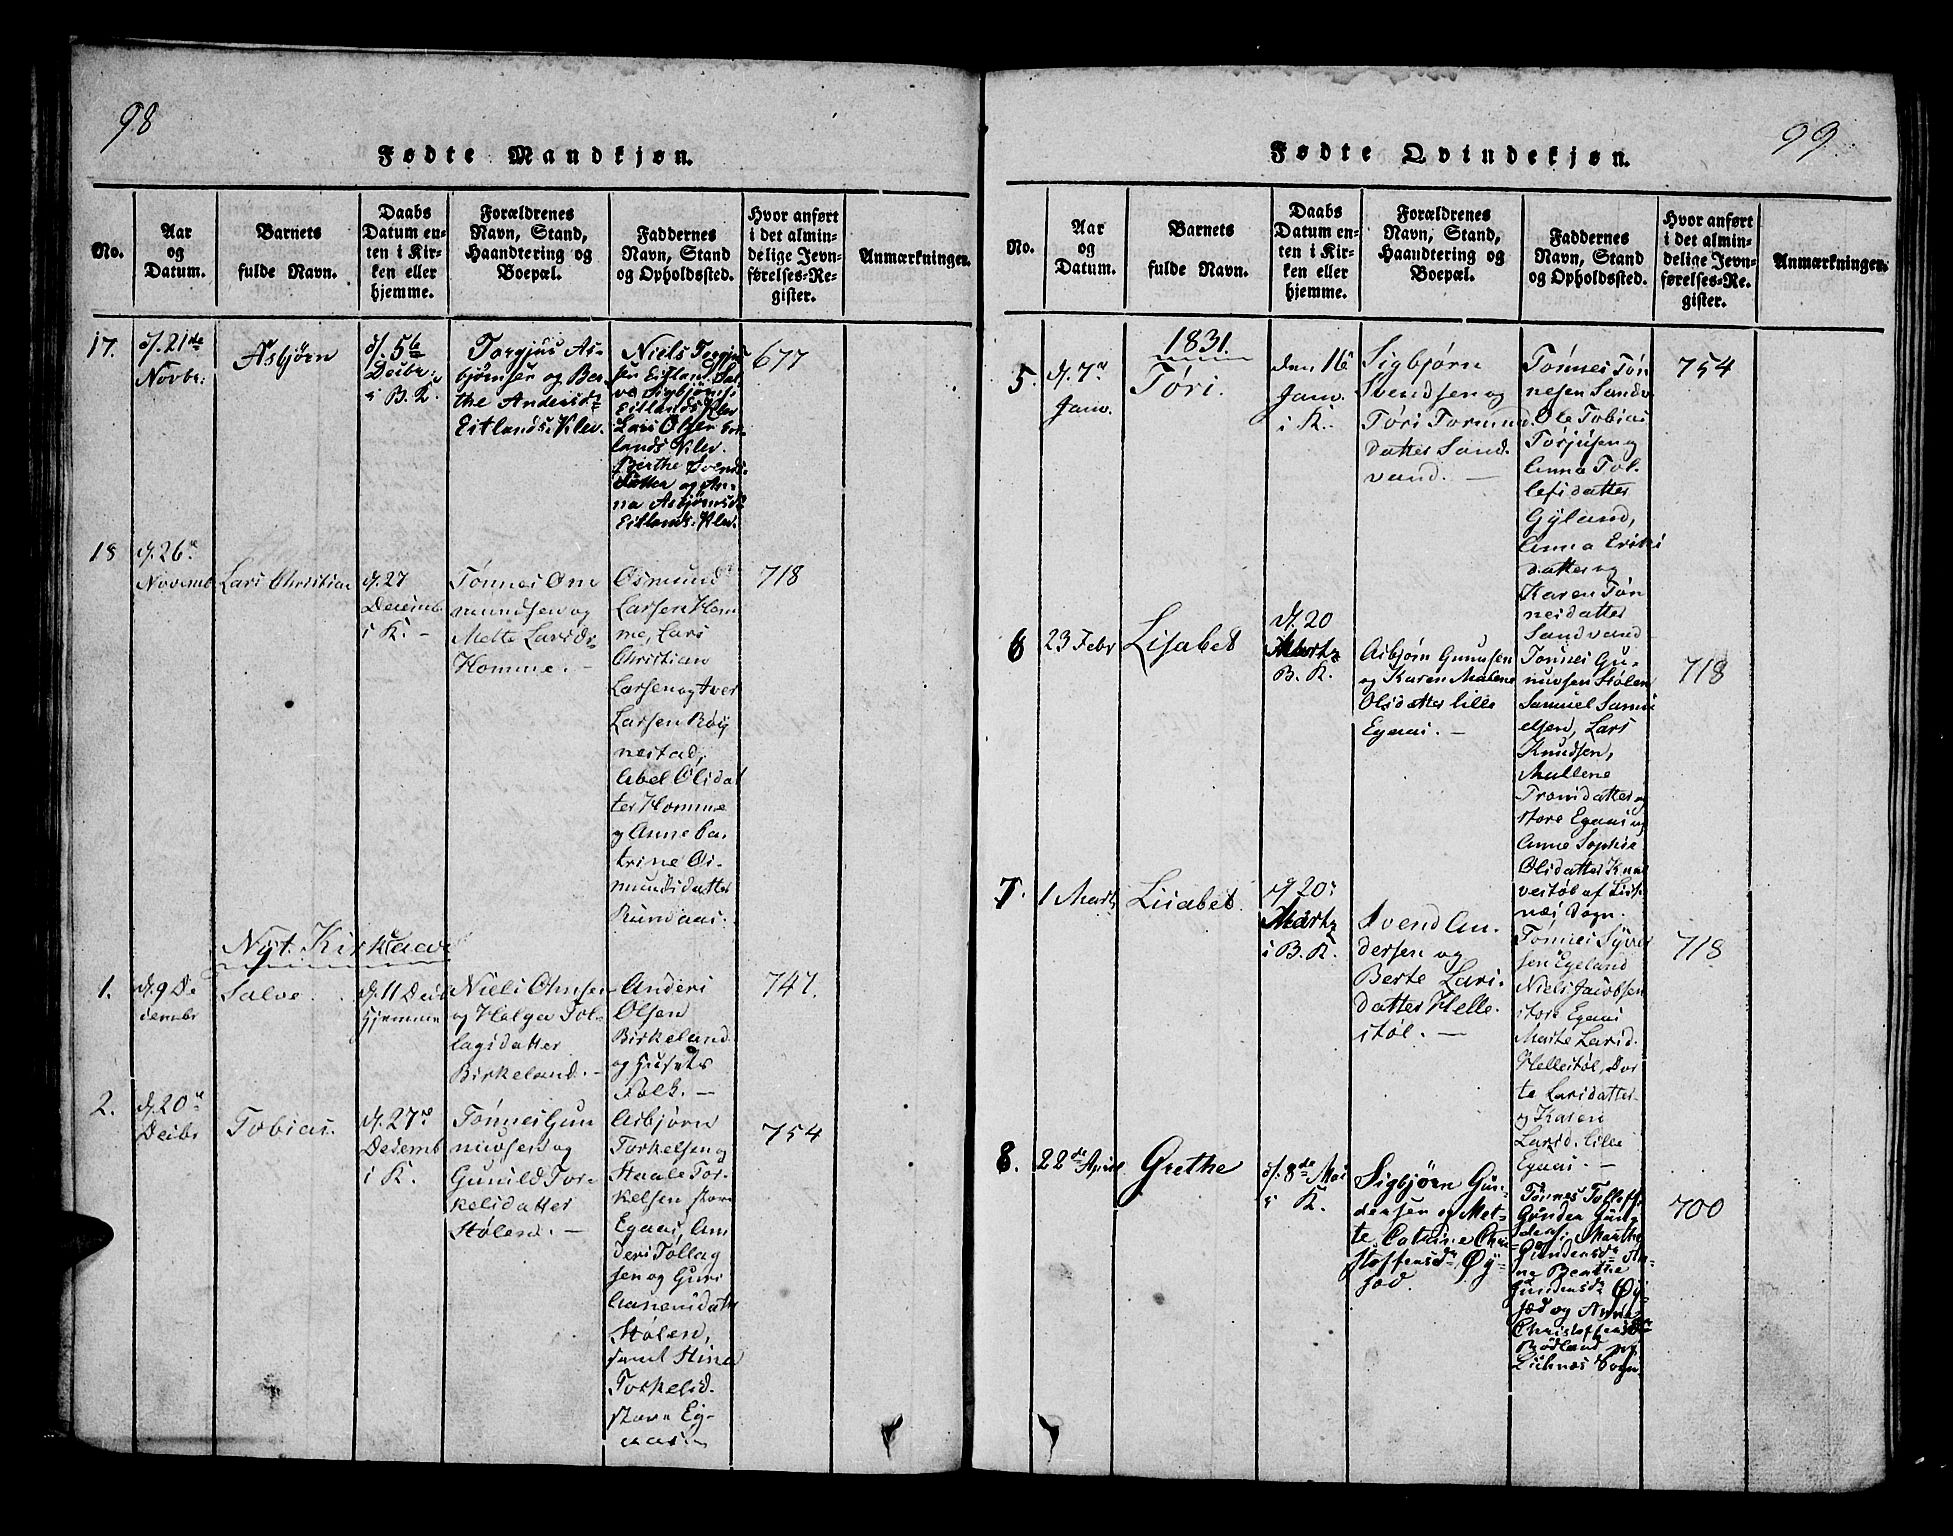 98
Fødte Mandkjøn.
No.
Aar
og
Datum.
Barnets
fulde Navn.
Daabs
Datum en-
ten i Kir-
ken eller
hjemme.
Forældrenes
Navn, Stand,
Haandtering og
Boepæl.
Faddernes
Navn, Stand
og Opholdssted.
Hvor anført
i det almin-
delige Jevn-
førelses-Re-
gister.
Anmærkninger.
17.
d. 21de
Novbr.
Asbjørn
d. 5te
Decbr.
i B. K.
Torgjus As-
bjørnsen og Ber-
the Andersd.
Eitlands Klev.
Niels Torgjus
sen Eitland, Sal-
ve Sigbjørns.
Eitlands Klev
Lars Olsen Eit-
lands Klev.
Berthe Svends-
datter og An-
na Asbjørnsd.
Eitlands Klev.
677
18
d. 26de
Novemb
Lars Christian
d. 27
Decemb.
i K. -
Tønnes Om
mundsen og
Mette Larsd.
Homme. -
Osmund
Larsen Hom
me, Lars
Christian
Larsen og Iver
Larsen Røy
nestad,
Abel Olsdat
ter Homme
og Anne Ca-
trine Os-
mundsdatter
Rundaas.
718
Nyt Kirkeaar
1.
d. 9 De
cembr
Salve.
d. 11 Decb
Hjemme
Niels Omsen
og Helga Tol-
lagsdatter
Birkeland. -
Anders
Olsen
Birkeland
og Husets
Folk. -
747.
2.
d. 20de
Decbr
Tobias.
d. 27de
Decemb
i K.
Tønnes Gun
nuvsen og
Gunild Tor-
kelsdatter
Stølen. -
Asbjørn
Torkelsen og
Staale Tor-
kelsen store
Egaas, An
ders Tollag
sen og Guri
Aanensdatr
Stølen,
samt Stina
Torkelsd.
store Eg-
aas. -
754
99.
Fødte Qvindekjøn.
No.
Aar
og
Datum.
Barnets
fulde Navn.
Daabs
Datum en-
ten i Kir-
ken eller
hjemme.
Forældrenes
Navn, Stand,
Haandtering og
Boepæl.
Faddernes
Navn, Stand
og Opholdssted.
Hvor anført
i det almin-
delige Jevn-
førelses-Re-
gister.
Anmærkninger.
1831.
5.
d. 7de
Janv.
Tøri.
den 16
Janv.
i K.
Sigbjørn
Svendsen og
Tøri Tormund
datter Sand-
vand. -
Tønnes Tøn
nesen Sandv
Ole Tobias
Torjusen og
Anna Tol-
lefsdatter
Gyland,
Anna Eriks
datter og
Karen Tøn
nesdatter
Sandvand
754
6
23 Febr
Lisabet
d. 20
Martz
B. K.
Asbjørn Gunusen
og Karen Malene
Olsdatter lille
Egaas. -
Tønnes Gu-
nuvsen Stølen
Samuel Samu
elsen, Lars
Knudsen,
Mallene
Tromsdatter og
store Egaas og
Anne Sophie
Olsdatter Kna
vestøl af List-
næs Sogn.
718
7.
1 Martz
Lisabet.
d. 20de
Martz
i B. K.
Svend An-
dersen og
Berte Lars-
datter Helle-
støl. -
Tønnes Syver
sen Egeland
Niels Jacobsen
store Egaas
Marte Larsd.
Hellestøl, Dor
te Larsdatter
og Karen
Larsd. lille
Egaas. -
718
8.
22de April
Grethe
d. 8de Mai
i K.
Sigbjørn Gun-
densen og Met-
te Catrine Chri
stoffersd. Øy-
sæd.
Tønnes Tollefs.
Gunden Gun-
dens. Marthe
Gundensd. An-
na Berthe
Gundensd. Øy-
sæd og Anne
Christoffersd.
Rødland
Liknæs Sogn
700